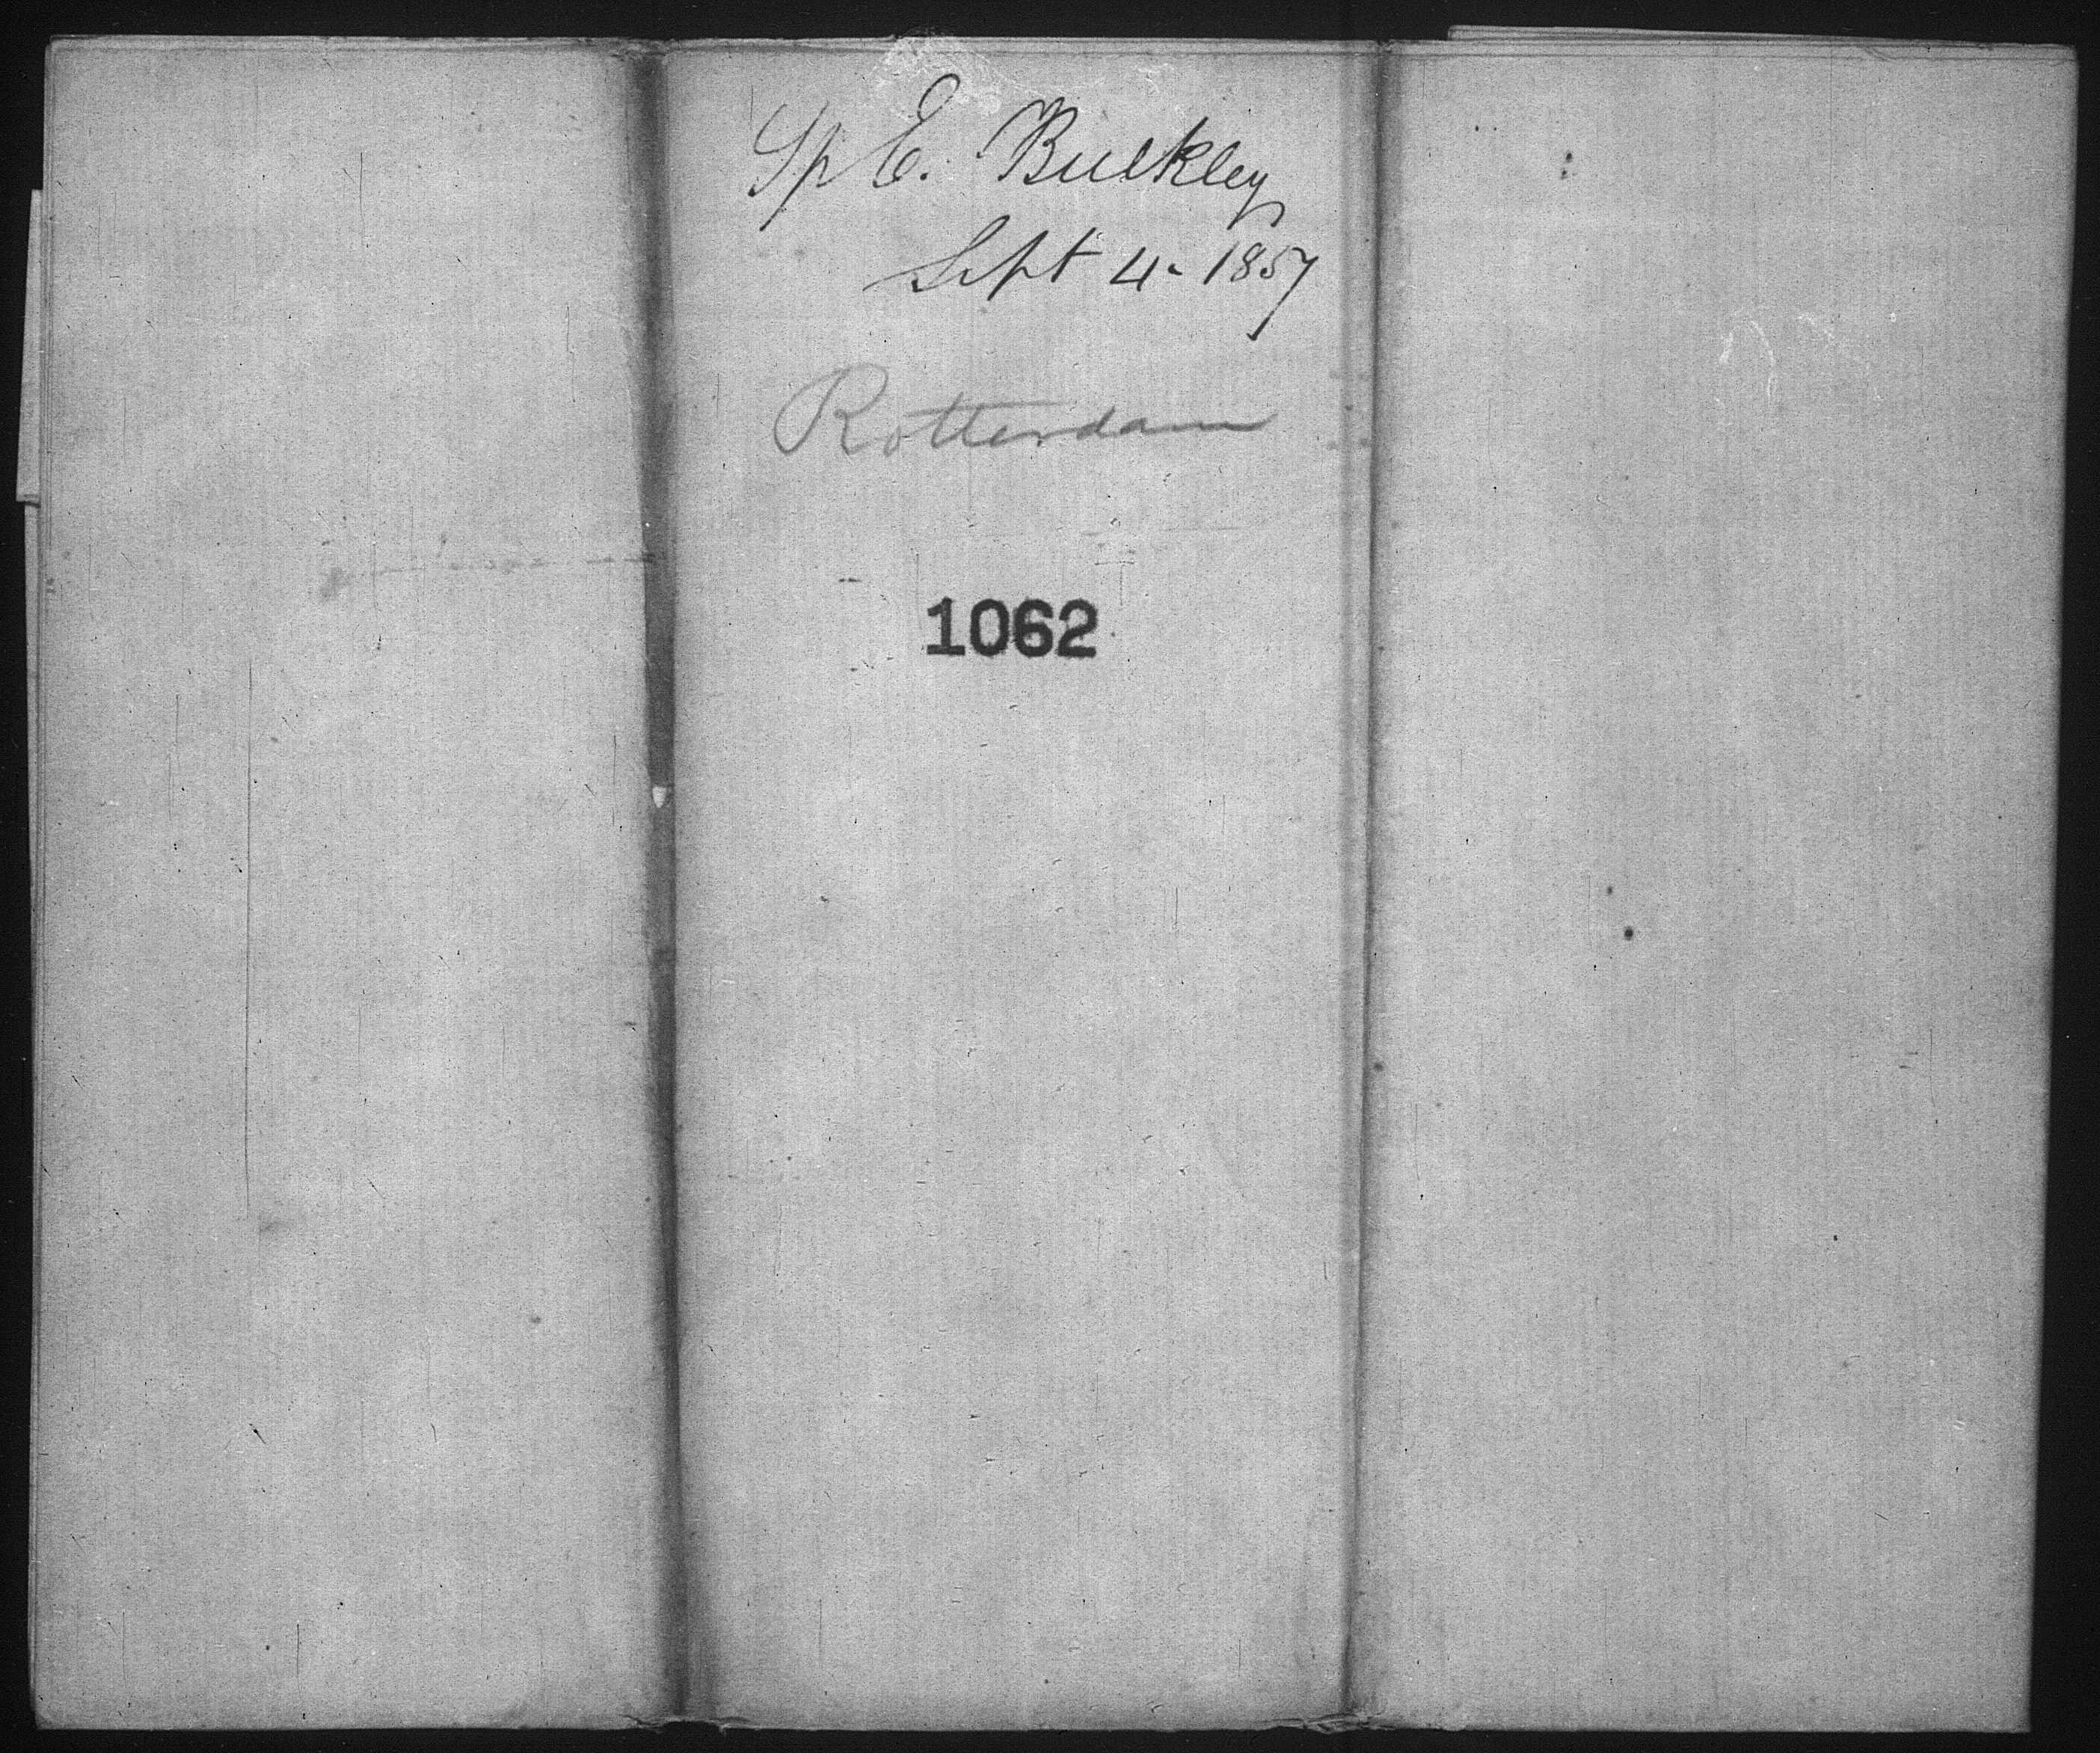 Sp E. Bulkley
Sept 4- 1857
Rotterdam
1062